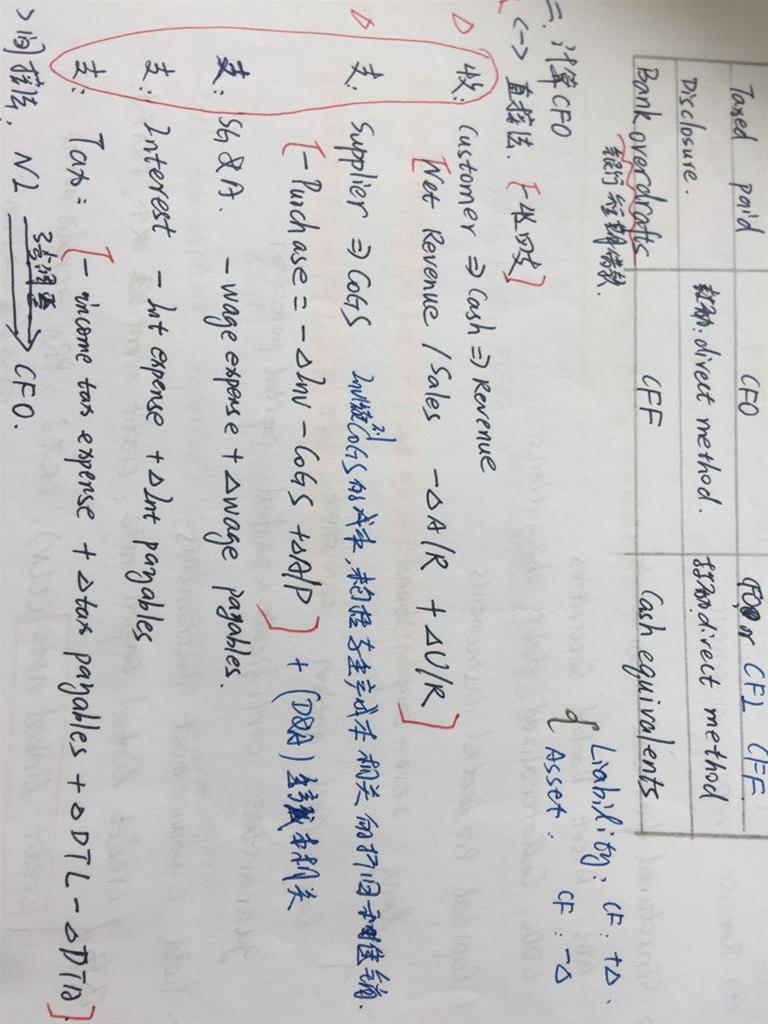 Taxed paid CFO CFO or CFI CFF
Disclosure. 鼓励. direct method. 鼓励. direct method
Bank overdrafts CFF Cash equivalents
银行短期借款.
二、计算CFO
<一> 直接法. [一收四支]
Liability: CF: +Δ.
Asset: CF: -Δ
Δ 收: Customer ⇒ Cash ⇒ Revenue
[Net Revenue / Sales -ΔA/R + ΔU/R]
Δ 支: Supplier ⇒ COGS Inv COGS 的成本, 来 与生产成本相关的折旧和摊销.
[-Purchase = -ΔInv - COGS + ΔA/P] + (D&A) 生产成本相关
支: SG&A. -wage expense + Δwage payables.
支: Interest -Int expense + ΔInt payables
支: Tax: [-income tax expense + Δtax payables + ΔDTL - ΔDTA]
> 间接法: NI 3步调整 → CFO.